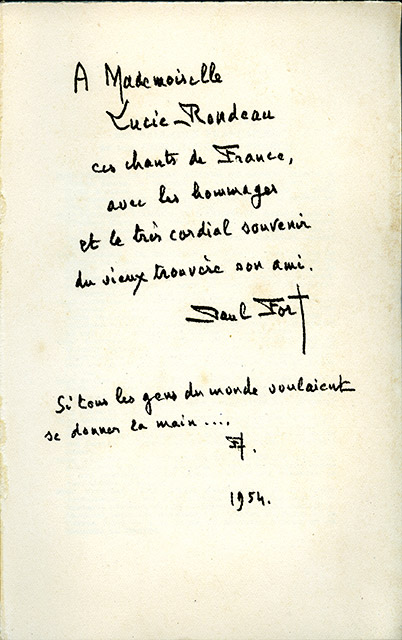 A Mademoiselle
Lucie Rondeau
ces chants de France,
avec les hommages
et le très cordial souvenir
du vieux trouvère son ami.
Paul Fort
Si tous les gens du monde voulaient
se donner la main ....
F.
1954.